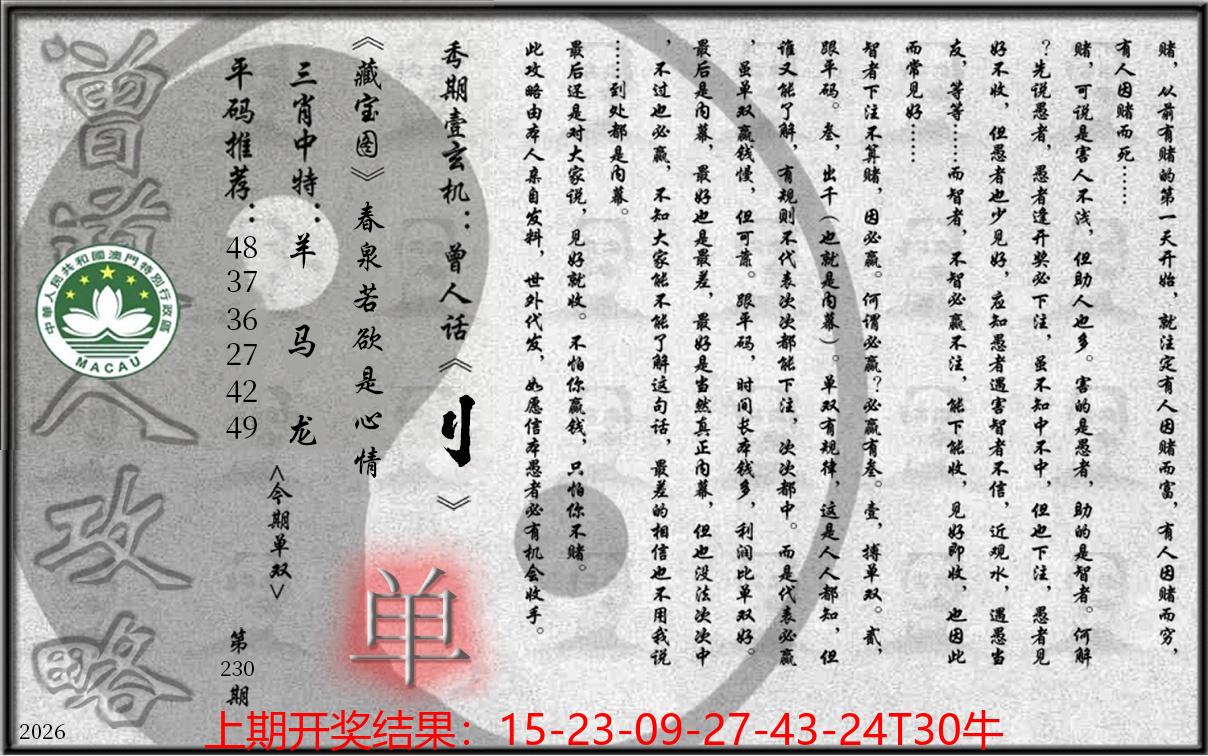 赌，从前有赌的第一天开始，就注定有人因赌而富，有人因赌而穷，
有人因赌而死……
赌，可说是害人不浅，但助人也多。害的是愚者，助的是智者。何解
？先说愚者，愚者逢开奖必下注，虽不知中不中，但也下注，愚者见
好不收，但愚者也少见好，应知愚者遇害智者不信，近观水，遇愚当
友，等等……而智者，不智必赢不注，能下能收，见好即收，也因此
而常见好……
智者下注不算赌，因必赢。何谓必赢？必赢有叁。壹，搏单双。贰，
跟平码。叁，出千（也就是内幕）。单双有规律，这是人人都知，但
谁又能了解，有规则不代表次次都能下注，次次都中。而是代表必赢
，虽单双赢钱慢，但可靠。跟平码，时间长本钱多，利润比单双好。
最后是内幕，最好也是最差，最好是当然真正内幕，但也没法次次中
，不过也必赢，不知大家能不能了解这句话，最差的相信也不用我说
……到处都是内幕。
最后还是对大家说，见好就收。不怕你赢钱，只怕你不赌。
此攻略由本人亲自发料，世外代发，如愿信本愚者必有机会收手。
每期壹玄机：曾人话《刂》
《藏宝图》春泉若欲是心情
三肖中特：羊 马 龙
<今期单双>
单
平码推荐：
48
37
36
27
42
49
第
230
期
曾道人攻略
中華人民共和國澳門特別行政區
MACAU
2026
上期开奖结果：15-23-09-27-43-24T30牛